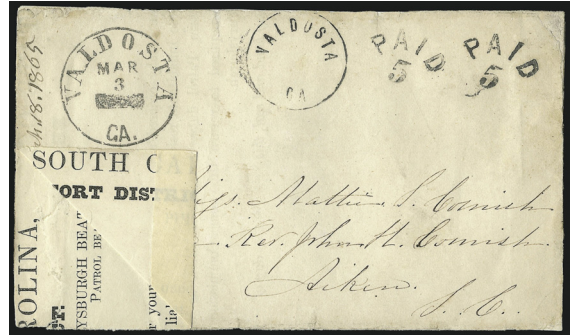 VALDOSTA
MAR
3
GA.
VALDOSTA
GA
PAID
5
PAID
5
SOUTH CA
FORT DIST
ROLINA,
CT.
YSBURGH BEA
PATROL BE
r your
Miss. Mattie S. Cornish
Rev. John H. Cornish
Aiken.
S. C.